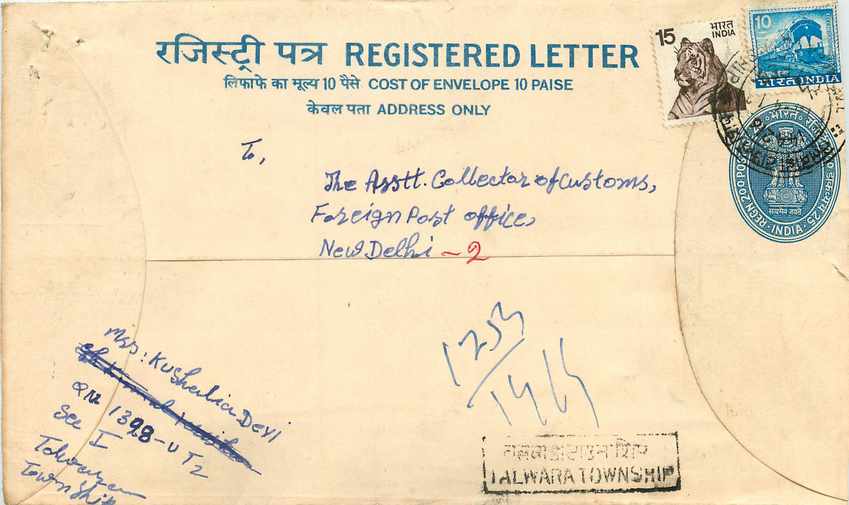 रजिस्ट्री पत्र REGISTERED LETTER
लिफाफे का मूल्य 10 पैसे COST OF ENVELOPE 10 PAISE
केवल पता ADDRESS ONLY
15 भारत
INDIA
10
भारत INDIA
भारत
REGN 200 PO
INDIA
To,
The Asstt. Collector of Customs,
Foreign Post office,
New Delhi - 2
1253
Mrs: Kushalia Devi
QN 1398-U T2
Sec I
Township
तलवाड़ा टाउनशिप
TALWARA TOWNSHIP